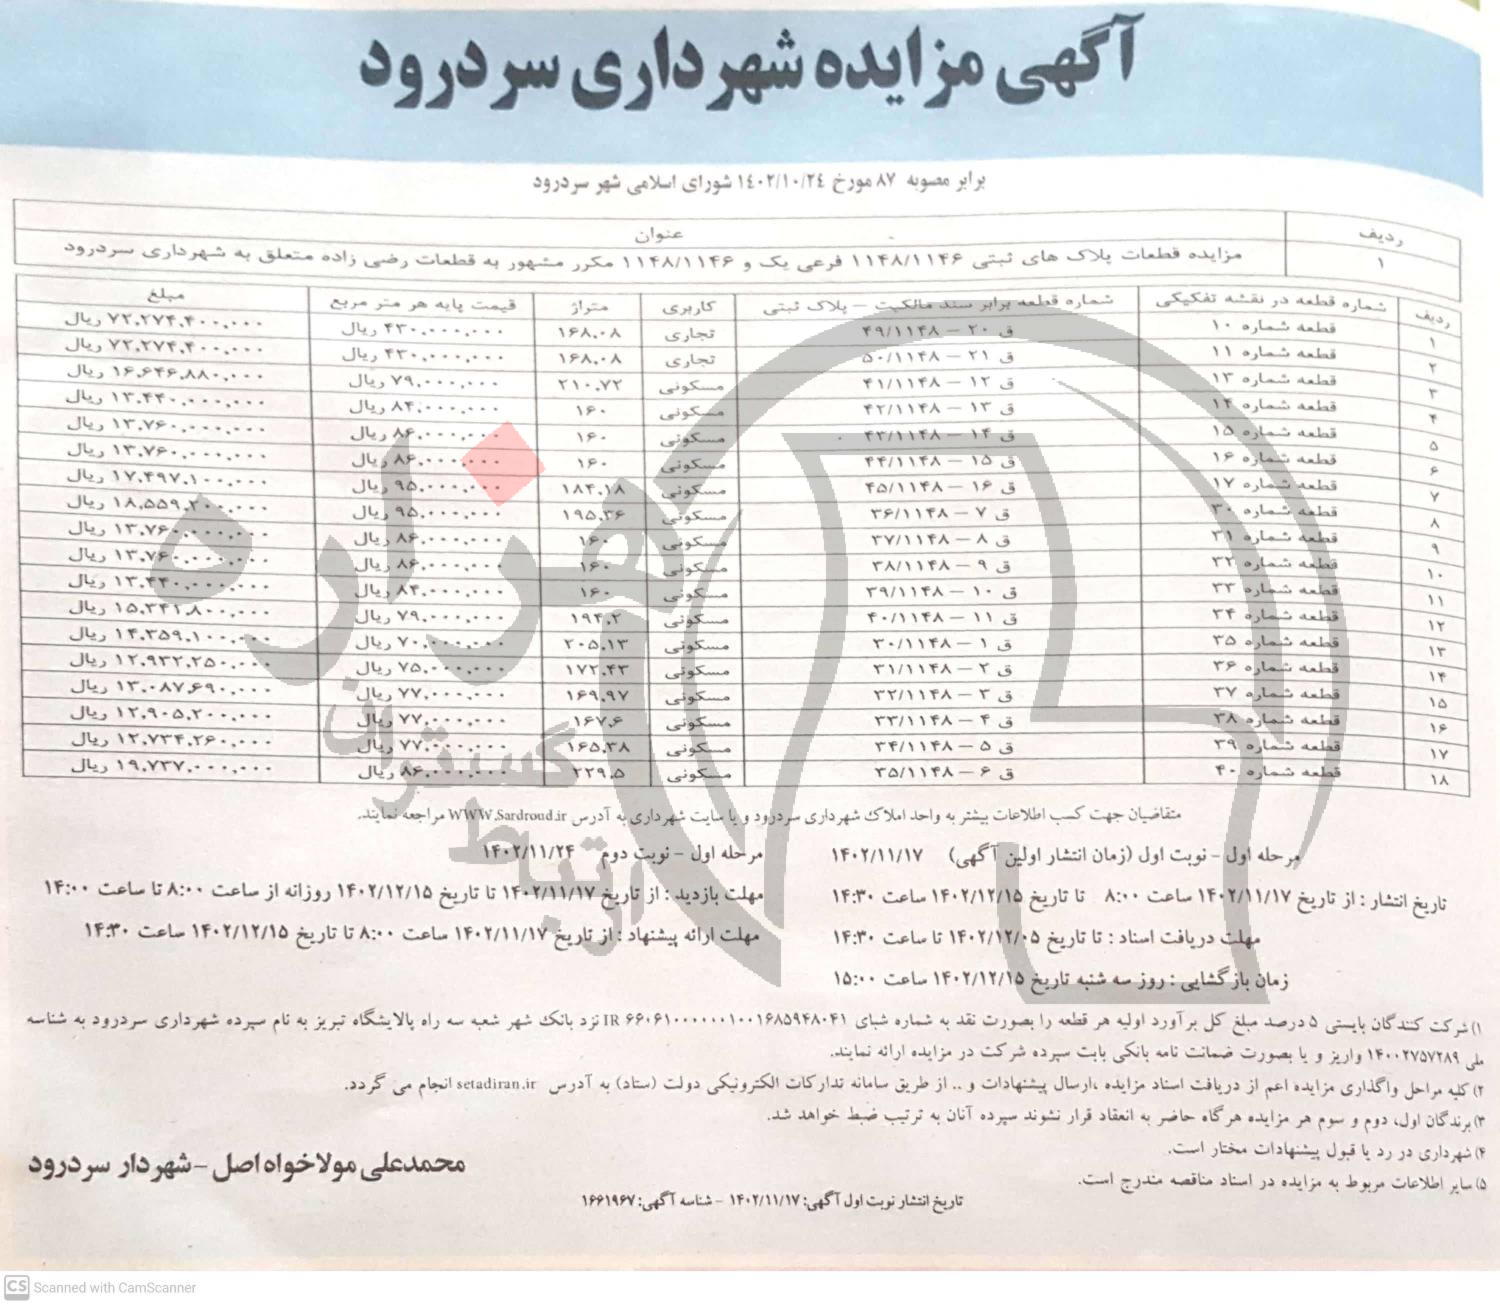 آگهی مزایده شهرداری سردرود
برابر مصوبه ۸۷ مورخ ۱۴۰۲/۱۰/۲۴ شورای اسلامی شهر سردرود
ردیف عنوان
۱ مزایده قطعات پلاک های ثبتی ۱۱۴۸/۱۱۴۶ فرعی یک و ۱۱۴۸/۱۱۴۶ مکرر مشهور به قطعات رضی زاده متعلق به شهرداری سردرود
ردیف شماره قطعه در نقشه تفکیکی شماره قطعه برابر سند مالکیت – پلاک ثبتی کاربری متراژ قیمت پایه هر متر مربع مبلغ
۱ قطعه شماره ۱۰ ق ۲۰ – ۴۹/۱۱۴۸ تجاری ۱۶۸.۰۸ ۴۳۰.۰۰۰.۰۰۰ ریال ۷۲.۲۷۴.۴۰۰.۰۰۰ ریال
۲ قطعه شماره ۱۱ ق ۲۱ – ۵۰/۱۱۴۸ تجاری ۱۶۸.۰۸ ۴۳۰.۰۰۰.۰۰۰ ریال ۷۲.۲۷۴.۴۰۰.۰۰۰ ریال
۳ قطعه شماره ۱۳ ق ۱۲ – ۴۱/۱۱۴۸ مسکونی ۲۱۰.۷۲ ۷۹.۰۰۰.۰۰۰ ریال ۱۶.۶۴۶.۸۸۰.۰۰۰ ریال
۴ قطعه شماره ۱۴ ق ۱۳ – ۴۲/۱۱۴۸ مسکونی ۱۶۰ ۸۴.۰۰۰.۰۰۰ ریال ۱۳.۴۴۰.۰۰۰.۰۰۰ ریال
۵ قطعه شماره ۱۵ ق ۱۴ – ۴۳/۱۱۴۸ مسکونی ۱۶۰ ۸۶.۰۰۰.۰۰۰ ریال ۱۳.۷۶۰.۰۰۰.۰۰۰ ریال
۶ قطعه شماره ۱۶ ق ۱۵ – ۴۴/۱۱۴۸ مسکونی ۱۶۰ ۸۶.۰۰۰.۰۰۰ ریال ۱۳.۷۶۰.۰۰۰.۰۰۰ ریال
۷ قطعه شماره ۱۷ ق ۱۶ – ۴۵/۱۱۴۸ مسکونی ۱۸۴.۱۸ ۹۵.۰۰۰.۰۰۰ ریال ۱۷.۴۹۷.۱۰۰.۰۰۰ ریال
۸ قطعه شماره ۳۰ ق ۷ – ۳۶/۱۱۴۸ مسکونی ۱۹۵.۳۶ ۹۵.۰۰۰.۰۰۰ ریال ۱۸.۵۵۹.۲۰۰.۰۰۰ ریال
۹ قطعه شماره ۳۱ ق ۸ – ۳۷/۱۱۴۸ مسکونی ۱۶۰ ۸۶.۰۰۰.۰۰۰ ریال ۱۳.۷۶۰.۰۰۰.۰۰۰ ریال
۱۰ قطعه شماره ۳۲ ق ۹ – ۳۸/۱۱۴۸ مسکونی ۱۶۰ ۸۶.۰۰۰.۰۰۰ ریال ۱۳.۷۶۰.۰۰۰.۰۰۰ ریال
۱۱ قطعه شماره ۳۳ ق ۱۰ – ۳۹/۱۱۴۸ مسکونی ۱۶۰ ۸۴.۰۰۰.۰۰۰ ریال ۱۳.۴۴۰.۰۰۰.۰۰۰ ریال
۱۲ قطعه شماره ۳۴ ق ۱۱ – ۴۰/۱۱۴۸ مسکونی ۱۹۴.۲ ۷۹.۰۰۰.۰۰۰ ریال ۱۵.۳۴۱.۸۰۰.۰۰۰ ریال
۱۳ قطعه شماره ۳۵ ق ۱ – ۳۰/۱۱۴۸ مسکونی ۲۰۵.۱۳ ۷۰.۰۰۰.۰۰۰ ریال ۱۴.۳۵۹.۱۰۰.۰۰۰ ریال
۱۴ قطعه شماره ۳۶ ق ۲ – ۳۱/۱۱۴۸ مسکونی ۱۷۲.۴۳ ۷۵.۰۰۰.۰۰۰ ریال ۱۲.۹۳۲.۲۵۰.۰۰۰ ریال
۱۵ قطعه شماره ۳۷ ق ۳ – ۳۲/۱۱۴۸ مسکونی ۱۶۹.۹۷ ۷۷.۰۰۰.۰۰۰ ریال ۱۳.۰۸۷.۶۹۰.۰۰۰ ریال
۱۶ قطعه شماره ۳۸ ق ۴ – ۳۳/۱۱۴۸ مسکونی ۱۶۷.۶ ۷۷.۰۰۰.۰۰۰ ریال ۱۲.۹۰۵.۲۰۰.۰۰۰ ریال
۱۷ قطعه شماره ۳۹ ق ۵ – ۳۴/۱۱۴۸ مسکونی ۱۶۵.۳۸ ۷۷.۰۰۰.۰۰۰ ریال ۱۲.۷۳۴.۲۶۰.۰۰۰ ریال
۱۸ قطعه شماره ۴۰ ق ۶ – ۳۵/۱۱۴۸ مسکونی ۲۲۹.۵ ۸۶.۰۰۰.۰۰۰ ریال ۱۹.۷۳۷.۰۰۰.۰۰۰ ریال
متقاضیان جهت کسب اطلاعات بیشتر به واحد املاک شهرداری سردرود و یا سایت شهرداری به آدرس WWW.Sardroud.ir مراجعه نمایند.
مرحله اول – نوبت اول (زمان انتشار اولین آگهی) ۱۴۰۲/۱۱/۱۷ مرحله اول – نوبت دوم ۱۴۰۲/۱۱/۲۴
تاریخ انتشار : از تاریخ ۱۴۰۲/۱۱/۱۷ ساعت ۸:۰۰ تا تاریخ ۱۴۰۲/۱۲/۱۵ ساعت ۱۴:۳۰ مهلت بازدید : از تاریخ ۱۴۰۲/۱۱/۱۷ تا تاریخ ۱۴۰۲/۱۲/۱۵ روزانه از ساعت ۸:۰۰ تا ساعت ۱۴:۰۰
مهلت دریافت اسناد : تا تاریخ ۱۴۰۲/۱۲/۰۵ تا ساعت ۱۴:۳۰ مهلت ارائه پیشنهاد : از تاریخ ۱۴۰۲/۱۱/۱۷ ساعت ۸:۰۰ تا تاریخ ۱۴۰۲/۱۲/۱۵ ساعت ۱۴:۳۰
زمان بازگشایی : روز سه شنبه تاریخ ۱۴۰۲/۱۲/۱۵ ساعت ۱۵:۰۰
۱) شرکت کنندگان بایستی ۵ درصد مبلغ کل برآورد اولیه هر قطعه را بصورت نقد به شماره شبای IR ۶۶۰۶۱۰۰۰۰۰۰۱۰۰۱۶۸۵۹۴۸۰۴۱ نزد بانک شهر شعبه سه راه پالایشگاه تبریز به نام سپرده شهرداری سردرود به شناسه
ملی ۱۴۰۰۲۷۵۷۲۸۹ واریز و یا بصورت ضمانت نامه بانکی بابت سپرده شرکت در مزایده ارائه نمایند.
۲) کلیه مراحل واگذاری مزایده اعم از دریافت اسناد مزایده ،ارسال پیشنهادات و .. از طریق سامانه تدارکات الکترونیکی دولت (ستاد) به آدرس setadiran.ir انجام می گردد.
۳) برندگان اول، دوم و سوم هر مزایده هرگاه حاضر به انعقاد قرار نشوند سپرده آنان به ترتیب ضبط خواهد شد.
۴) شهرداری در رد یا قبول پیشنهادات مختار است.
۵) سایر اطلاعات مربوط به مزایده در اسناد مناقصه مندرج است.
محمدعلی مولاخواه اصل – شهردار سردرود
تاریخ انتشار نوبت اول آگهی: ۱۴۰۲/۱۱/۱۷ – شناسه آگهی: ۱۶۶۱۹۶۷
هزاره
گستران
ارتباط
CS Scanned with CamScanner